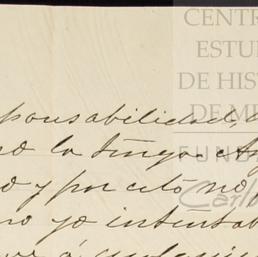 CENTR
ESTU
DE HIS
DE M
FUN
Carl
ponsabilidad,
no la tengo.
o y por esto no
ro yo intentab